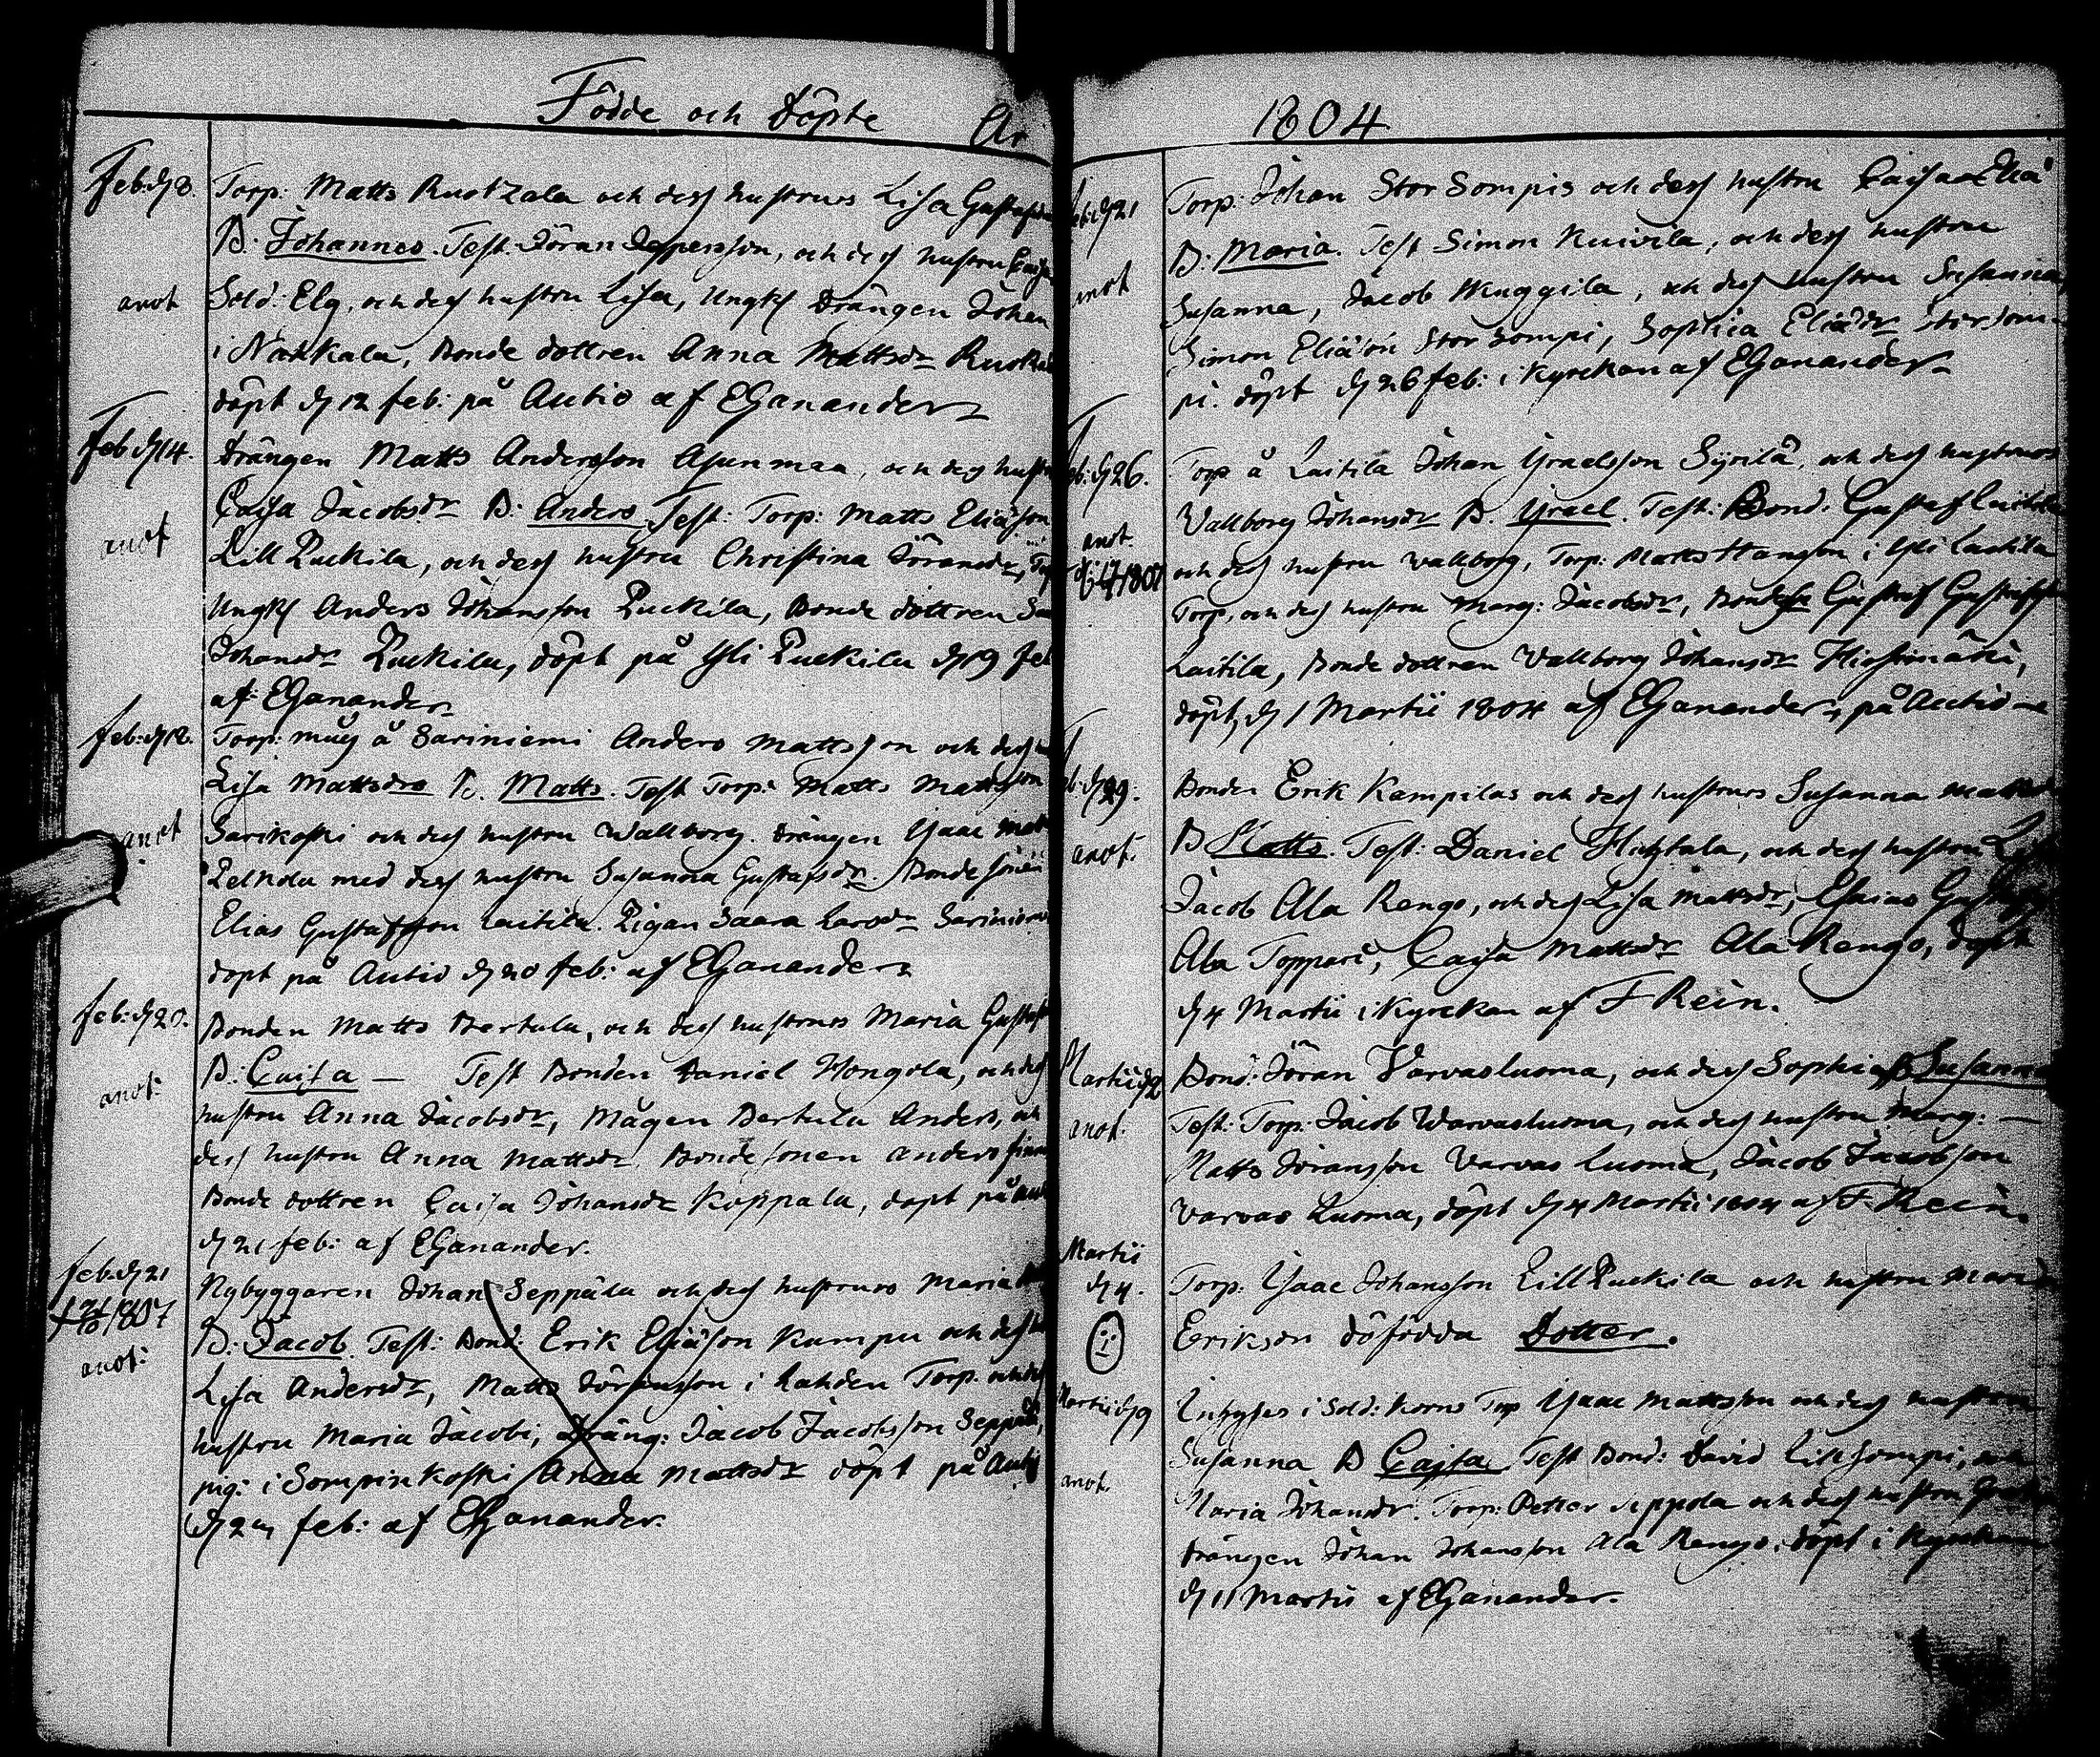 Födde och döpte
Feb: d 8. Torp: Matts Ruotzala och dess hustrus Lisa
B: Johannes. Test. Jöran Jespersson, och dess hustru Caisa
anot Sold: Elg, och dess hustru Lisa, Ungk: drängen Johan
i Nahkala, Bonde dottren Anna Mattsdr
döpt d 12 feb: på Autio af EGanander
Feb d 14. Drängen Matts Andersson Asunmaa, och dess
Caisa Jacobsdr B: Anders Test: Torp: Matts Eliäson
anot Lill Puckila, och dess hustru Christina Göransdr,
Ungk: Anders Johansson Puckila, Bonde dottren
Johansdr Puckila, döpt på Yli Puckila d 19 feb
af EGanander
feb: d 18. Torp: måg å Sariniemi Anders Mattsson och dess
Lisa Mattsdrs B. Matts. Test Torp: Matts Mattsson
anot Sarikoski och dess hustru Wallborg. drängen Ysaac
Pelkola med dess hustru Susanna Gustafsdr. Bonde sonen
Elias Gustafsson Laitila. Pigan Saara Larsdr
döpt på Autio d 20 feb: af EGanander
feb: d 20. Bonden Matts Bertula, och dess hustrus Maria
B: Caisa — Test Bonden Daniel Hongola, och dess
anot: hustru Anna Jacobsdr, Mågen Bertula Anders, och
dess hustru Anna Mattsdr. Bonde sonen Anders
Bonde dottren Caisa Johansdr Koppala, döpt på
d 21 feb: af EGanander.
feb. d 21 Nybyggaren Johan Seppälä och dess hustrus Maria
1807 B: Jacob. Test: Bond: Erik Eliäson Kampu och dess
anot: Lisa Andersdr, Matts Jöransson i Lahden Torp. och dess
hustru Maria Jacobi, Dräng: Jacob Jacobsson Seppälä,
pig: i Sompinkoski Anna Mattsdr döpt på
feb: af EGanander.
1804
feb: d 21 Torp: Johan Stor Sompis och dess hustru Caisa
B: Maria. Test Simon Kuivila, och dess hustru
anot Susanna, Jacob Muggila, och dess hustru Susanna,
Simon Eliäson Stor Sompi, Sophia Eliädr Stor Som-
pi. döpt d 26 feb: i Kyrckan af EGanander
feb: d 26. Torp å Laitila Johan Ysraelsson Syrilä, och dess hustrus
Vallborg Johansdr B. Ysrael. Test: Bond: Gustaf Laitila
anot. och dess hustru Vallborg, Torp: Matts i Yli Laitila
1807 Torp, och dess hustru Marg: Jacobsdr, Gustaf
Laitila, Bonde dottren Vallborg Johansdr
döpt, d 1 Martii 1804 af EGanander, på Autio
feb: d 29. Bonden Erik Kampilas och dess hustrus Susanna
B Matts. Test: Daniel och dess hustru
anot: Jacob Ala Rengo, och dess Lisa Mattsdr, Esaias
Ala Toppari, Caisa Mattsdr Ala Rengo, döpt
d 4 Martii i Kyrckan af F Rein.
Martii d 2 Bond: Jöran Varvasluoma, och dess Sophia B Susanna
anot: Test: Torp: Jacob Warvasluoma, och dess hustru Marg: —
Matts Jöransson Varvas Luoma, Jacob Jacobson
Varvas Luoma, döpt d 4 Martii 1804 af F: Rein.
Martii
d 4. Torp. Ysaac Johansson Lill Puckila och hustru Maria
Eriksdr döfödda Dotter.
Martii d 9 Inhyses i Sold: Korns Torp Ysaac Mattsson och dess hustru
Susanna B Cajsa Test Bond: David Lill Sompi, och
anot. Maria Johansdr. Torp: Petter Seppola och dess hustru
drängen Johan Johansson Ala Rengo, döpt i Kyrckan
d 11 Martii af EGanander.